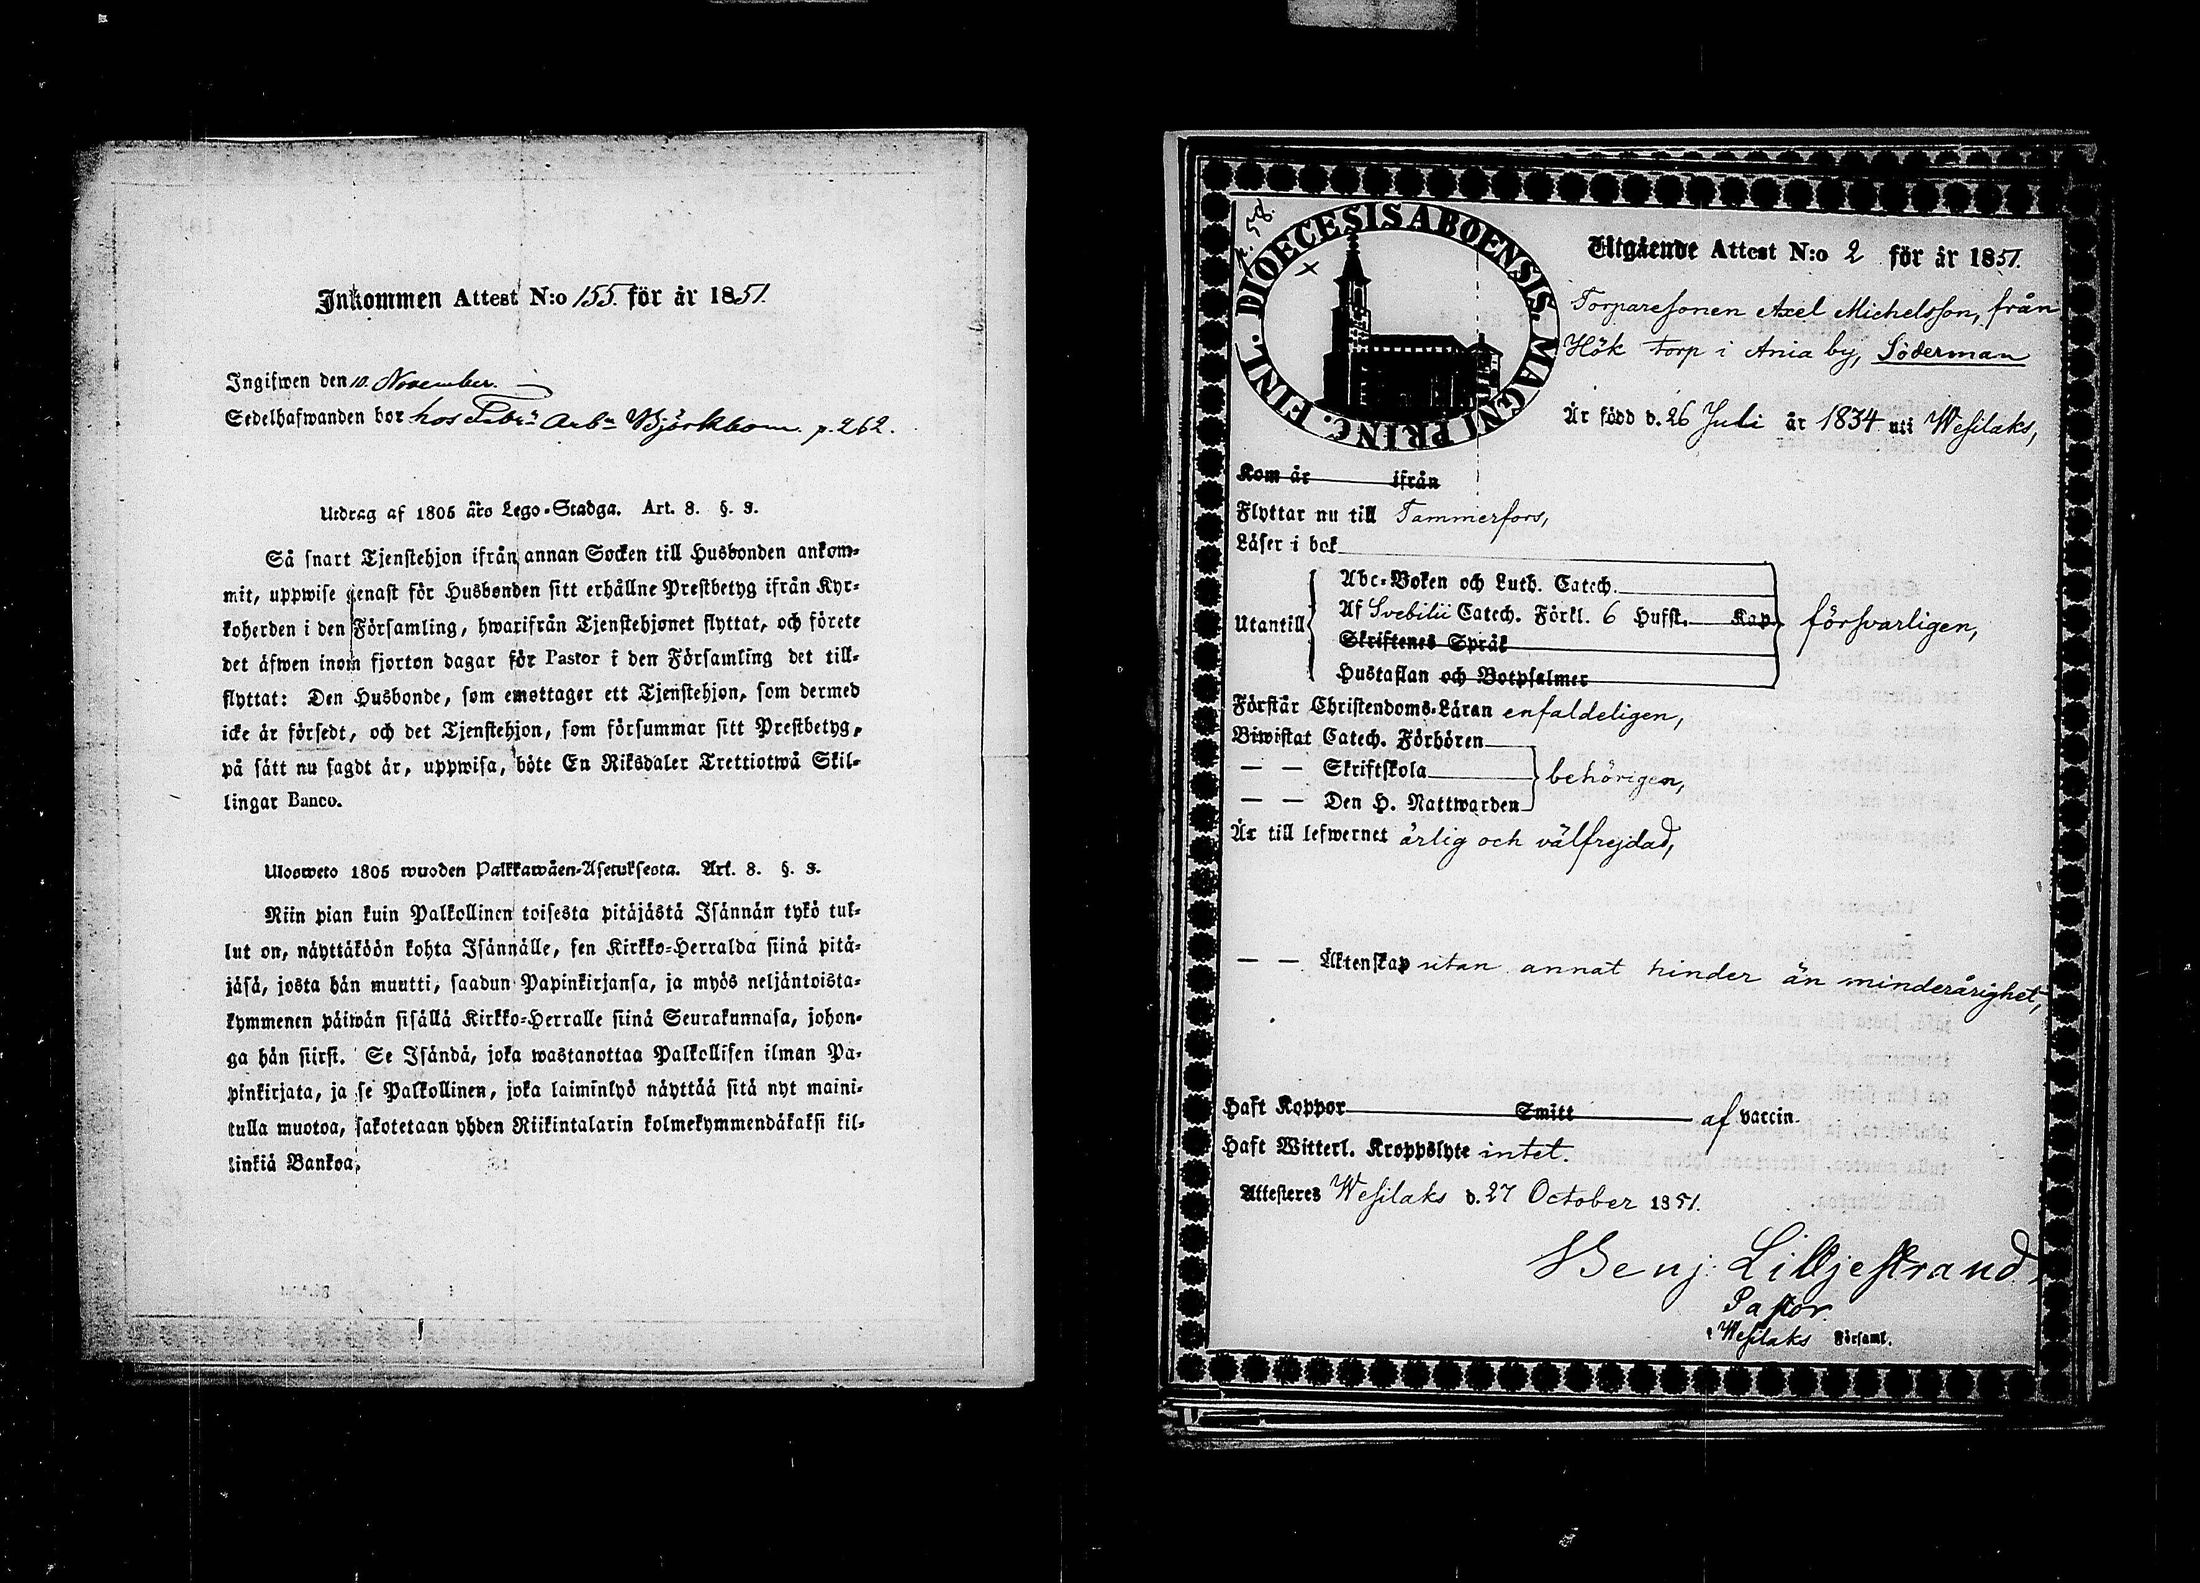 Inkommen Attest N:o 155. för år 1851.
Ingifwen den 10. November.
Sedelhafwanden bor hos Fabrs Arbn Björkbom. p. 262.
Utdrag af 1805 års Lego-Stadga. Art. 8. §. 3.
Så snart Tjenstehjon ifrån annan Socken till Husbonden ankom-
mit, uppwise genast för Husbonden sitt erhållne Prestbetyg ifrån Kyr-
koherden i den Församling, hwarifrån Tjenstehjonet flyttat, och förete
det äfwen inom fjorton dagar för Pastor i den Församling det till-
flyttat: Den Husbonde, som emottager ett Tjenstehjon, som dermed
icke är försedt, och det Tjenstehjon, som försummar sitt Prestbetyg,
på sätt nu sagdt är, uppwisa, böte En Riksdaler Trettiotwå Skil-
lingar Banco.
Ulosweto 1805 wuoden Palkkawäen-Asetuksesta. Art. 8. §. 3.
Niin pian kuin Palkollinen toisesta pitäjästä Isännän tykö tul-
lut on, näyttäköön kohta Isännälle, sen Kirkko-Herralda siinä pitä-
jäsä, josta hän muutti, saadun Papinkirjansa, ja myös neljäntoista-
kymmenen päiwän sisällä Kirkko-Herralle siinä Seurakunnasa, johon-
ga hän siirsi. Se Isändä, joka wastanottaa Palkollisen ilman Pa-
pinkirjata, ja se Palkollinen, joka laiminlyö näyttää sitä nyt maini-
tulla muotoa, sakotetaan yhden Riikintalarin kolmekymmendäkaksi kil-
linkiä Bankoa.
p. 58.
DIOECESIS ABOENSIS. MAGNI PRINC. FINL.
Utgående Attest N:o 2 för år 1851.
Torparesonen Axel Michelsson, från
Hök torp i Ania by, Söderman
Är född d. 26 Juli år 1834 uti Wesilaks,
Kom år ifrån
Flyttar nu till Tammerfors,
Läser i bok
Utantill
Abc-Boken och Luth. Catech.
Af Svebilii Catech. Förkl. 6 Hufst. Kap.
Skriftenes Språk
Hustaflan och Botpsalmer
försvarligen,
Förstår Christendoms-Läran enfaldeligen,
Biwistat Catech. Förhören
— — Skriftskola
behörigen,
— — Den H. Nattwarden
Är till lefwernet ärlig och välfrejdad,
— — Äktenskap utan annat hinder än minderårighet,
Haft Koppor Smitt af vaccin.
Haft Witterl. Kroppslyte intet.
Attesteres Wesilaks d. 27 October 1851.
Benj: Liljestrand,
Pastor.
i Wesilaks Församl.